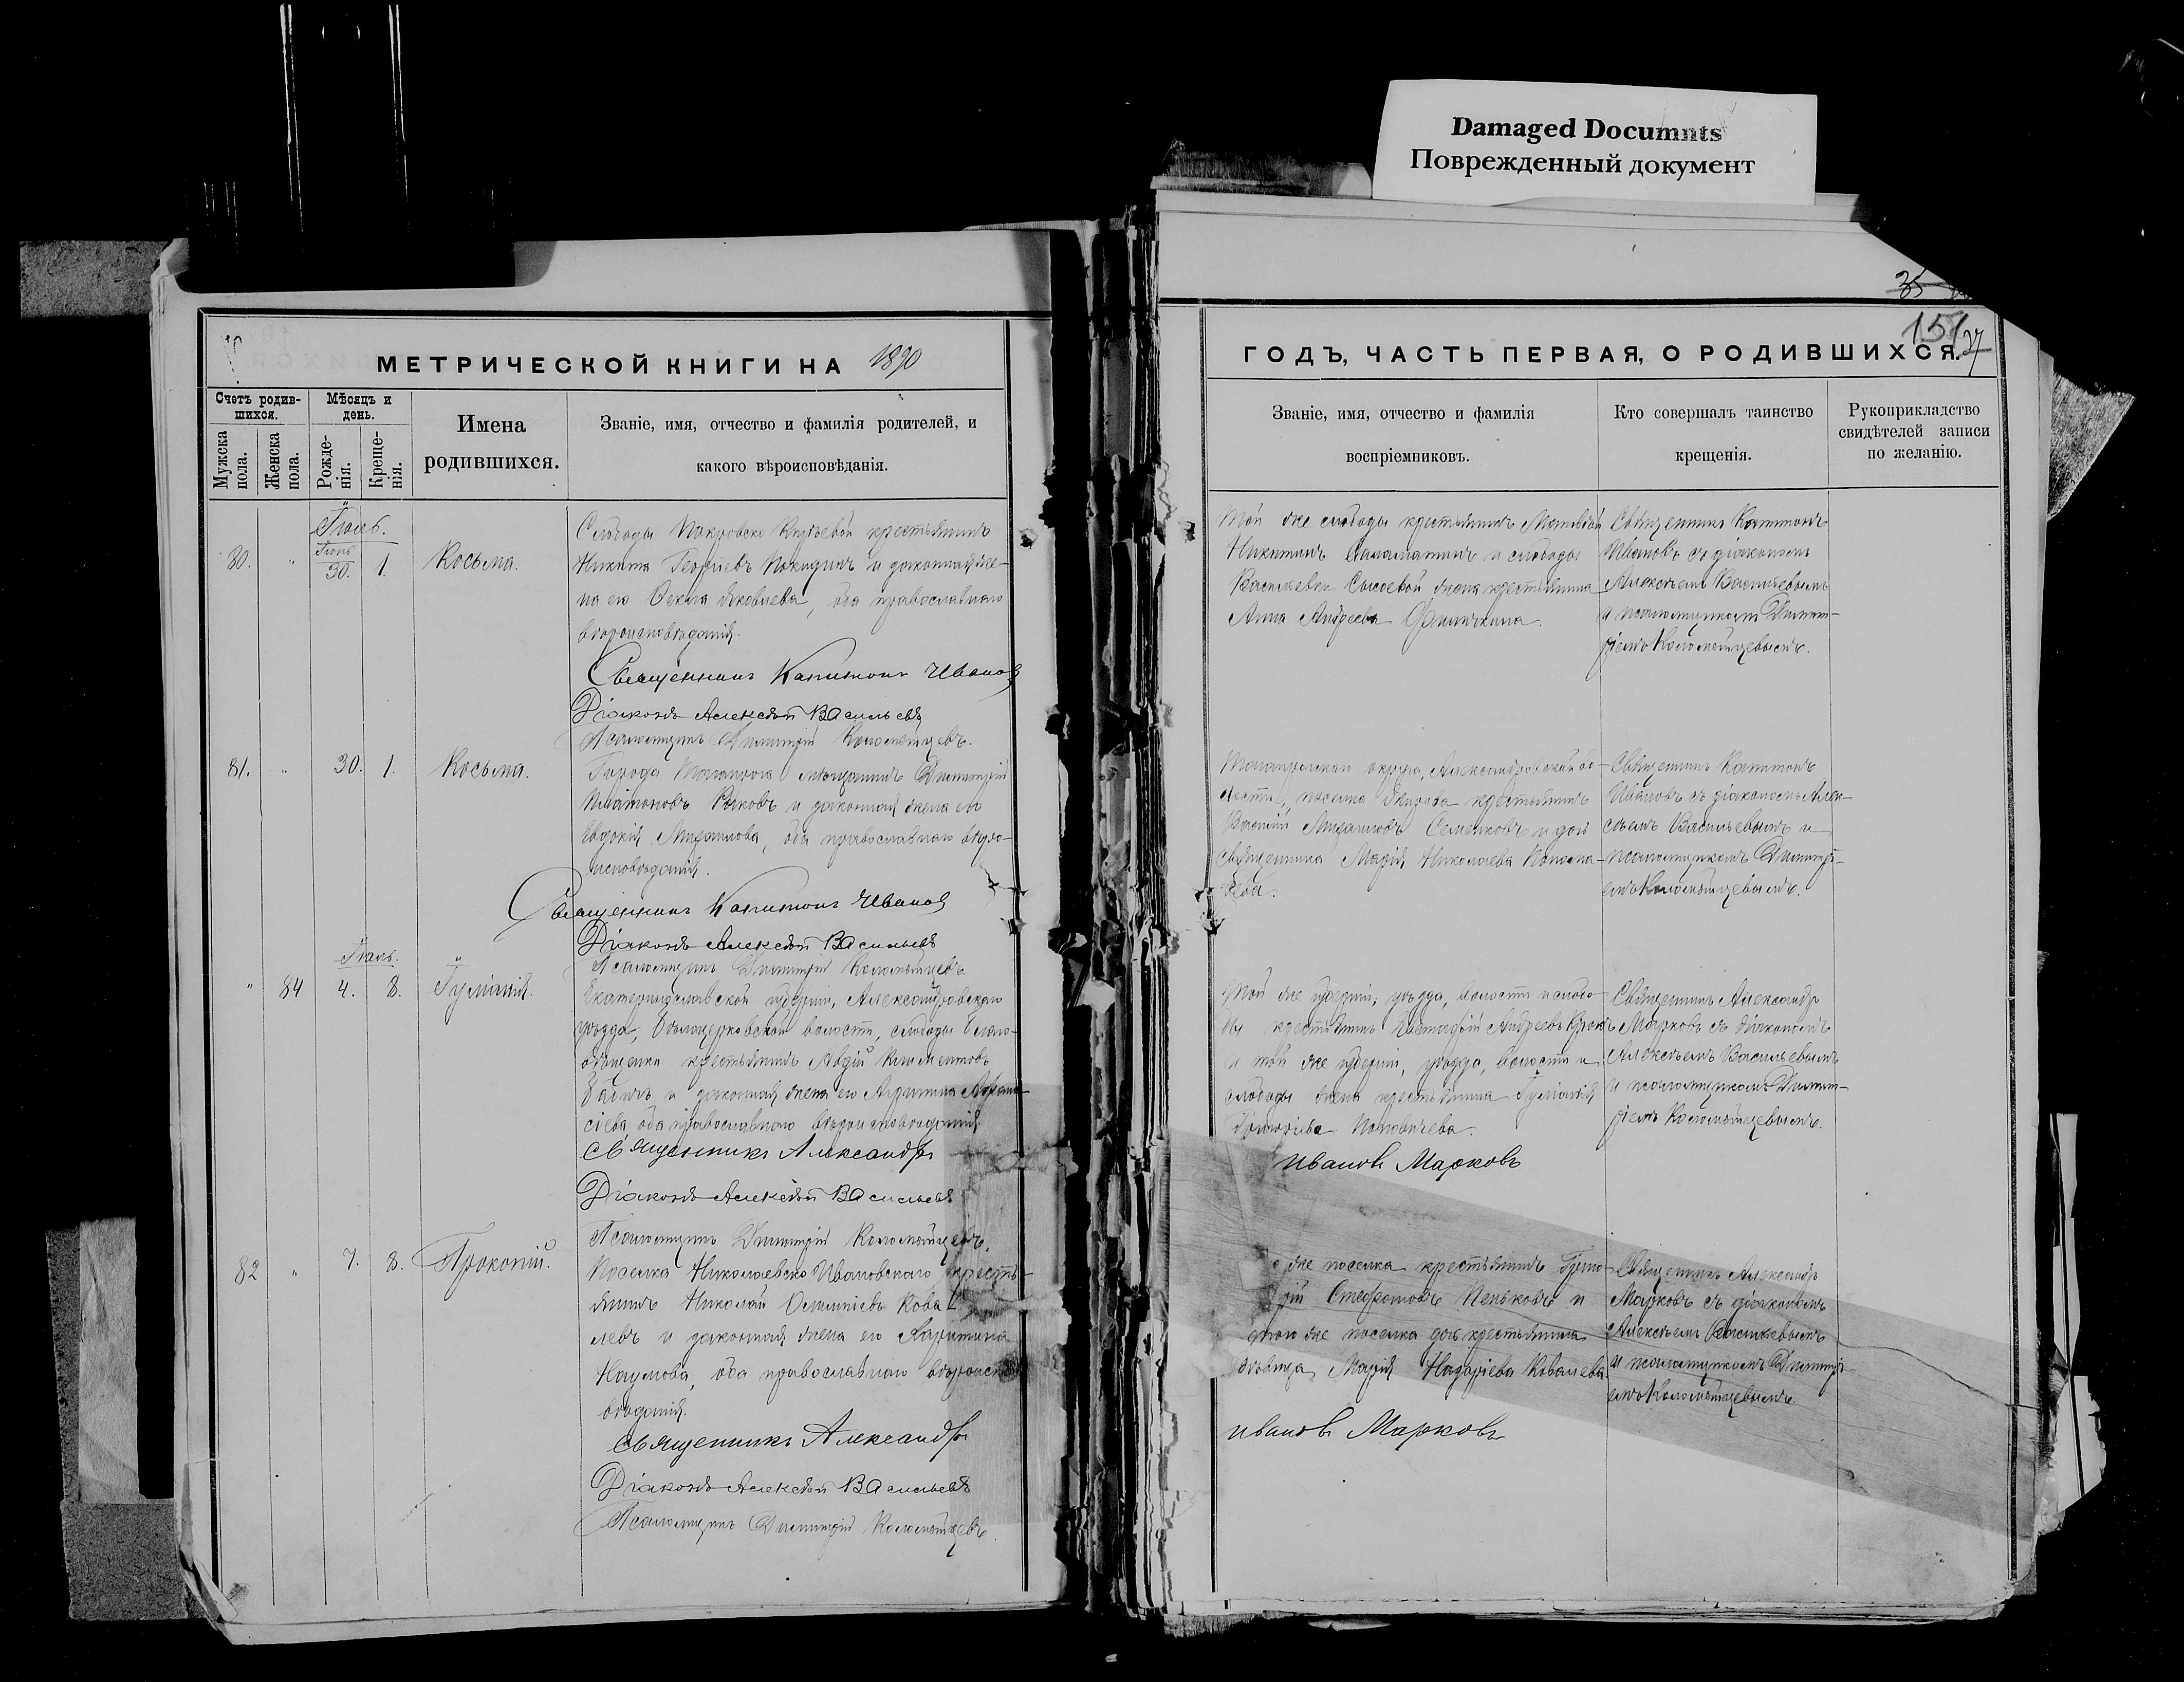 Damaged Documnts
Поврежденный документ
35
151
37
МЕТРИЧЕСКОЙ КНИГИ НА 1890
Счетъ родив-
шихся.
Мѣсяцъ и
день.
Мужска
пола.
Женска
пола.
Рожде-
нія.
Креще-
нія.
Имена
родившихся.
Званіе, имя, отчество и фамилія родителей, и
какого вѣроисповѣданія.
Іюль.
80. " Іюнь 30. 1. Косьма.
Слободы Покровско Киреевой крестьянинъ
Никита Георгіевъ и законная же-
на его Ѳекла Яковлева, оба православнаго
вѣроисповѣданія.
Священникъ Капитонъ Ивановъ
Діаконъ Алексѣй Васильевъ
Псаломщикъ Димитрій Коломѣйцевъ.
81. " 30. 1. Косьма.
Города Таганрога мѣщанинъ Димитрій
Платоновъ и законная жена его
Евдокія Михаилова, оба православнаго вѣро-
исповѣданія.
Священникъ Капитонъ Ивановъ
Діаконъ Алексѣй Васильевъ
Псаломщикъ Димитрій Коломѣйцевъ.
Іюль.
" 84 4. 8. Іуліанія.
Екатеринославской губерніи, Александровскаго
уѣзда, Бѣлоцерковской волости, слободы Благо-
вѣщенки крестьянинъ Авдій Климентовъ
Бабичъ и законная жена его Агрипина Афана-
сіева оба православнаго вѣроисповѣданія.
Священникъ Александръ
Діаконъ Алексѣй Васильевъ
Псаломщикъ Димитрій Коломѣйцевъ.
82 " 7. 8. Прокопій.
Поселка Николаевско Ивановскаго кресть-
янинъ Николай Олимпіевъ Кова-
левъ и законная жена его Харитина
Наумова, оба православнаго вѣроиспо-
вѣданія.
Священникъ Александръ
Діаконъ Алексѣй Васильевъ
Псаломщикъ Димитрій Коломѣйцевъ.
ГОДЪ, ЧАСТЬ ПЕРВАЯ, О РОДИВШИХСЯ.
Званіе, имя, отчество и фамилія
воспріемниковъ.
Кто совершалъ таинство
крещенія.
Рукоприкладство
свидѣтелей записи
по желанію.
Той же слободы крестьянинъ Матвѣй
Никитинъ и слободы
Васильевки Сысоевой жена крестьянина
Анна Андреева
Священникъ Капитонъ
Ивановъ съ діакономъ
Алексѣемъ Васильевымъ
и псаломщикомъ Димит-
ріемъ Коломѣйцевымъ.
Таганрогскаго округа, Александровской во-
лости, поселка крестьянинъ
Василій Михаиловъ Семенковъ и дочь
священника Марія Николаева
Священникъ Капитонъ
Ивановъ съ діакономъ Алек-
сѣемъ Васильевымъ и
псаломщикомъ Димитрі-
емъ Коломѣйцевымъ.
Той же губерніи, уѣзда, волости и слобо-
ды крестьянинъ Евстафій Андреевъ
и той же губерніи, уѣзда, волости и
слободы жена крестьянина Іуліанія
Григоріева
Священникъ Александръ
Марковъ съ діакономъ
Алексѣемъ Васильевымъ
и псаломщикомъ Димит-
ріемъ Коломѣйцевымъ.
Ивановъ Марковъ
же поселка крестьянинъ Григо-
рій Стефановъ Пеньковъ и
того же поселка дочь крестьянина
дѣвица Марія Назаріева Ковалева.
Священникъ Александръ
Марковъ съ діакономъ
Алексѣемъ Васильевымъ
и псаломщикомъ Димитрі-
емъ Коломѣйцевымъ.
Ивановъ Марковъ